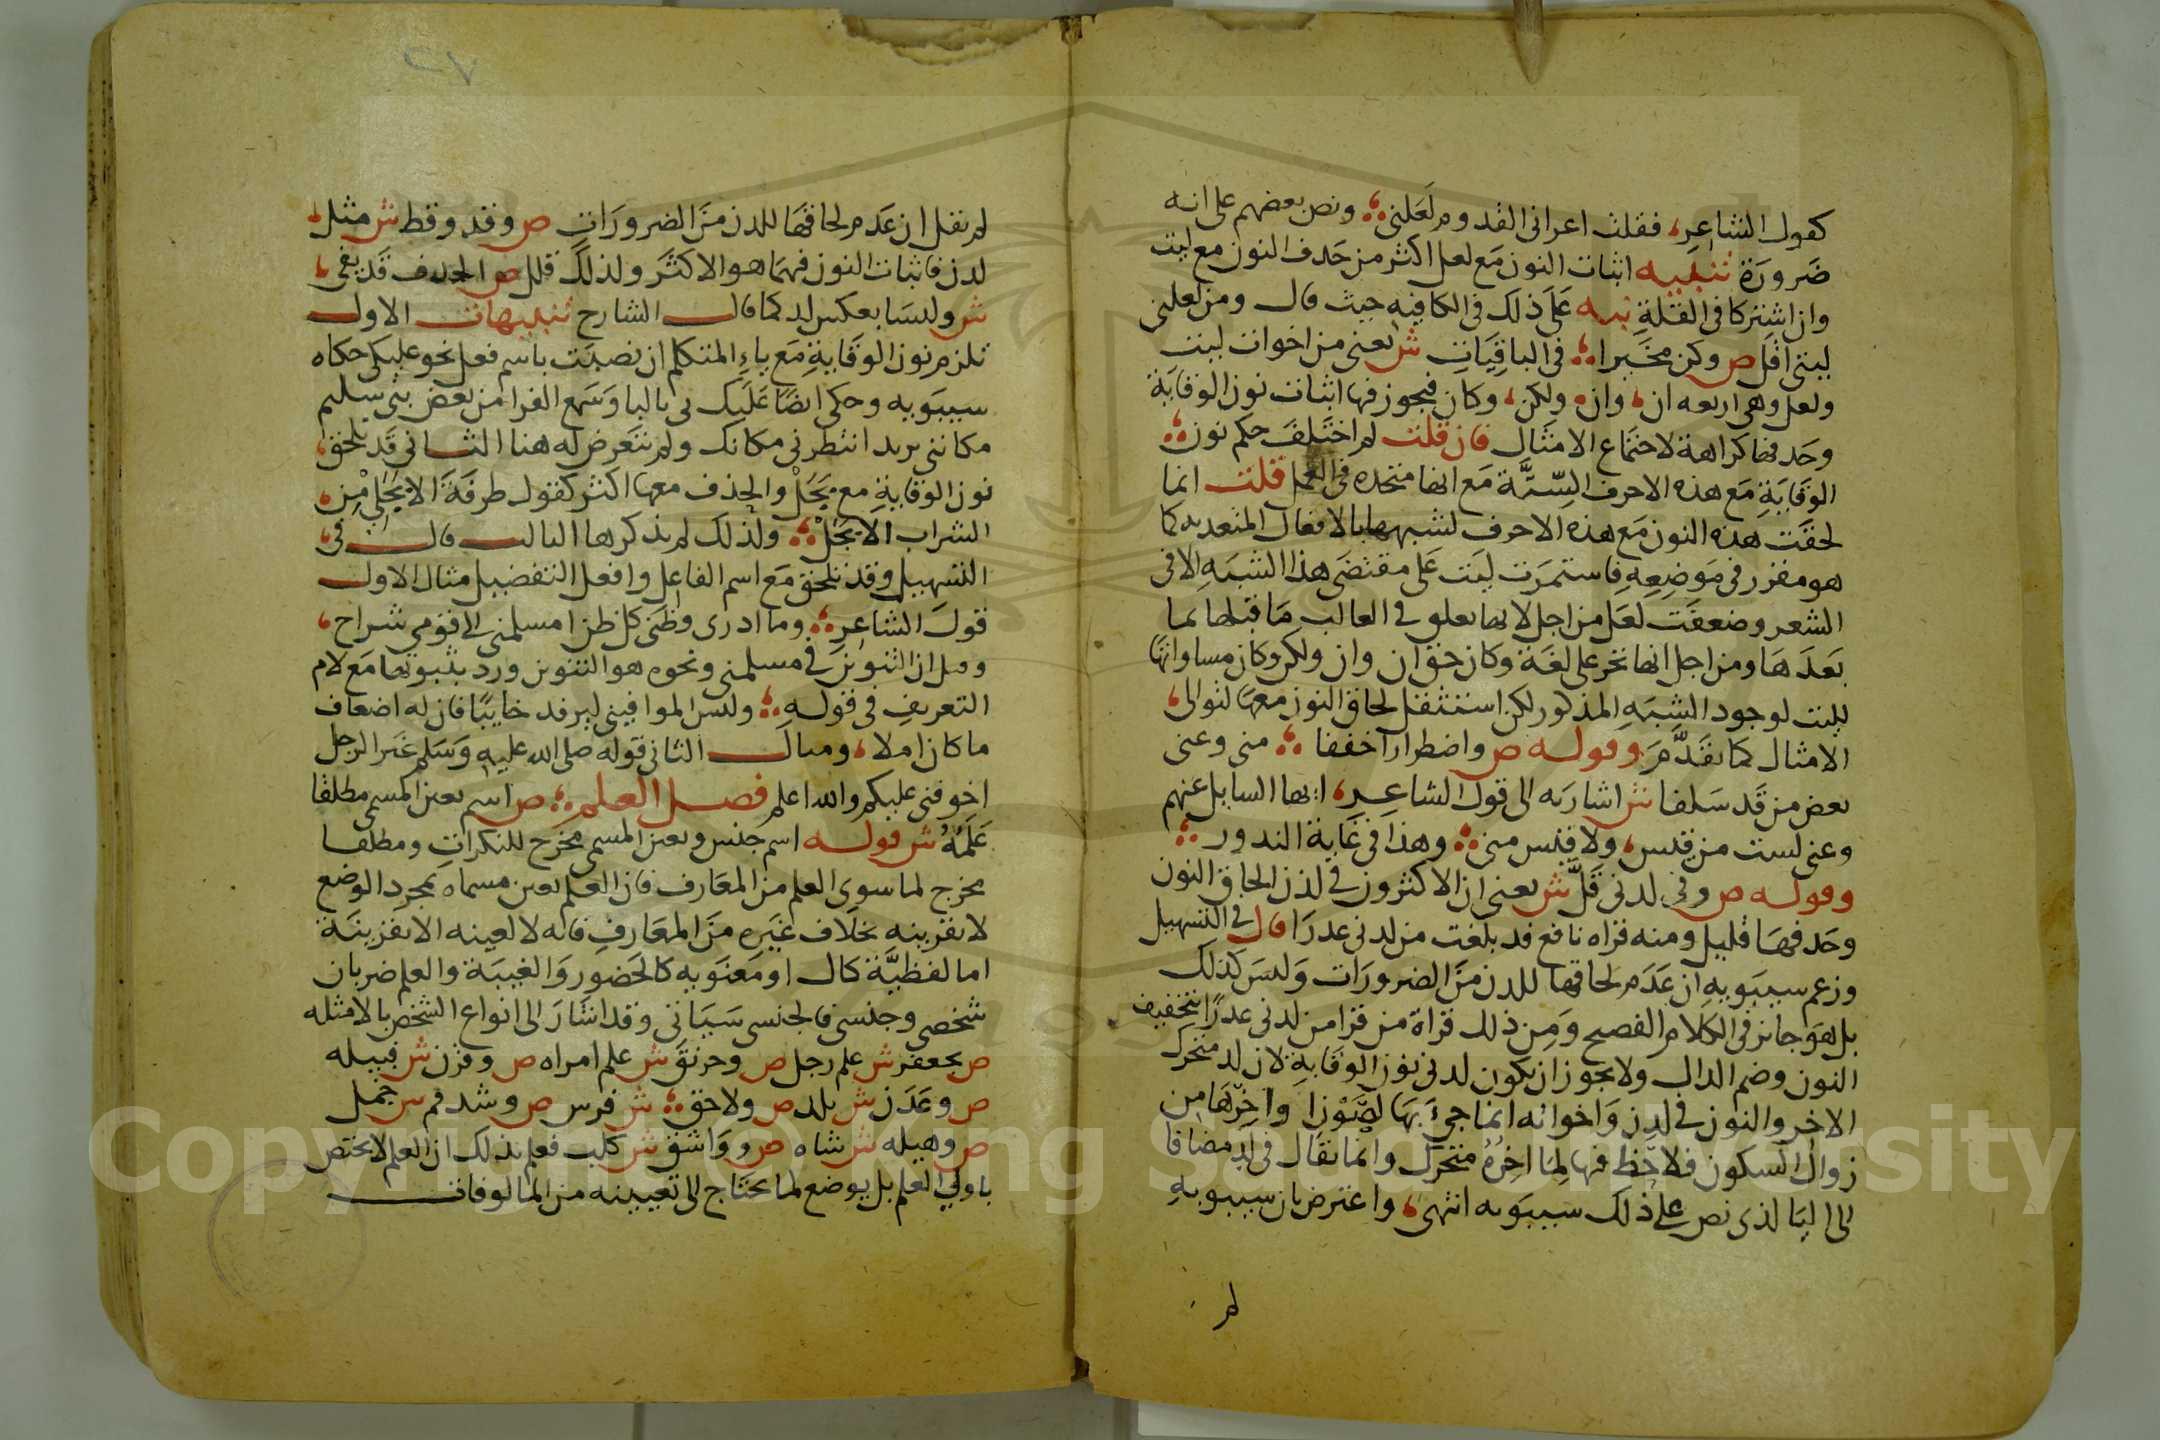 كقول الشاعر، فقلت اعراني القدوم لعلني ؛ ونص بعضهم على انه
ضرورة تنبيه اثبات النون مع لعل اكثر من حذف النون مع ليت
وان اشتركا في القلة نبه على ذلك في الكافيه حيث قال ومن لعلني
ليتي اقل ص وكن مخيرا ؛ في الباقيات ش يعني من اخوات ليت
ولعل وهي اربعه ان، وان، ولكن، وكان فيجوز فيها اثبات نون الوقاية
وحذفها كراهة لاجتماع الامثال فان قلت لم اختلف حكم نون ؛
الوقاية مع هذه الاحرف الستة مع انها متحده في العمل قلت انما
لحقت هذه النون مع هذه الاحرف لشبهها بالافعال المتعديه كما
هو مقرر في موضعه فاستمرت ليت على مقتضى هذا الشبه الا في
الشعر وضعفت لعل من اجل لانها تعلق في الغالب ما قبلها بما
بعدها ومن اجل انها تجر على لغة وكان حق ان وان ولكن وكان مساواتها
لليت لوجود الشبه المذكور لكن استثقل لحاق النون معها لتوالي،
الامثال كما تقدم وقوله ص واضطرارا خففا ؛ مني وعني
بعض من قد سلفا ش اشار به الى قول الشاعر، ايها السايل عنهم
وعني لست من قيس، ولا قيس مني ؛ وهذا في غاية الندور ؛
وقوله ص وفي لدني قل ش يعني ان الاكثرون في لدن الحاق النون
وحذفها قليل ومنه قراه نافع قد بلغت من لدني عذرا قال في التسهيل
وزعم سيبويه ان عدم لحاقها للدن من الضرورات وليس كذلك
بل هو جايز في الكلام الفصيح ومن ذلك قراة من قرا من لدني عذرا بتخفيف
النون وضم الدال ولا يجوز ان يكون لدني نون الوقاية لان لد متحرك
الاخر والنون في لدن واخواته انما جيء بها لصون اواخرها من
زوال السكون فلا حظ فيها لما اخره متحرك وانما يقال في لد مضافا
الى اليا لدي نص على ذلك سيبويه انتهى، واعترض بان سيبويه
لم
٢٧
لم يقل ان عدم لحاقها للدن من الضرورات ص وقد وقط ش مثل،
لدن فاثبات النون فيهما هو الاكثر ولذلك قال ص الحذف قد يفي،
ش وليسا بعكس لد كما قال الشارح تنبيهات الاول
تلزم نون الوقاية مع ياء المتكلم ان نصبت باسم فعل نحو عليكي حكاه
سيبويه وحكي ايضا عليك ني باليا وسمع الفرا من بعض بني سليم
مكانني يريد انتظرني مكانك ولم يتعرض له هنا الثاني قد تلحق،
نون الوقاية مع بجل والحذف معها اكثر كقول طرفة الا بجلي من،
الشراب الا بجل ؛ ولذلك لم يذكرها الثالث قال في،
التسهيل وقد تلحق مع اسم الفاعل وافعل التفضيل مثال الاول
قول الشاعر ؛ وما ادري وظني كل ظن امسلمني الى قومي شراح،
وقيل ان التنوين في مسلمني ونحوه هو التنوين ورد بثبوتها مع لام
التعريف في قوله ؛ وليس الموافيني ليرفد خايبا فان له اضعاف
ما كان املا، ومثال الثاني قوله صلى الله عليه وسلم غير الرجل
اخوفني عليكم والله اعلم فصل العلم ؛ ص اسم يعين المسمى مطلقا
علمه ش قوله اسم جنس ويعين المسمى مخرج للنكرات ومطلقا
مخرج لما سوى العلم من المعارف فان العلم يعين مسماه بمجرد الوضع
لا بقرينه بخلاف غيره من المعارف فانه لا يعينه الا بقرينة
اما لفظية كال او معنويه كالحضور والغيبة والعلم ضربان
شخصي وجنسي فالجنسي سياتي وقد اشار الى انواع الشخص بالامثله
ص بجعفر ش علم رجل ص وخرنق ش علم امراه ص وقرن ش قبيله
ص وعدن ش بلد ص ولاحق ؛ ش فرس ص وشدقم ش جمل
ص وهيله ش شاه ص وواشق ش كلب فعلم بذلك ان العلم لا يختص
باولي العلم بل يوضع لما يحتاج الى تعيينه من المالوفات
Copyright © King Saud University